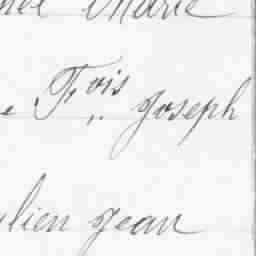 Marie
Fr,,ois Joseph
lien Jean